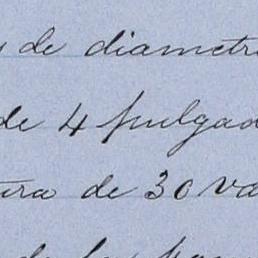 de diametr
de 4 pulgad
ura de 30 va
de la